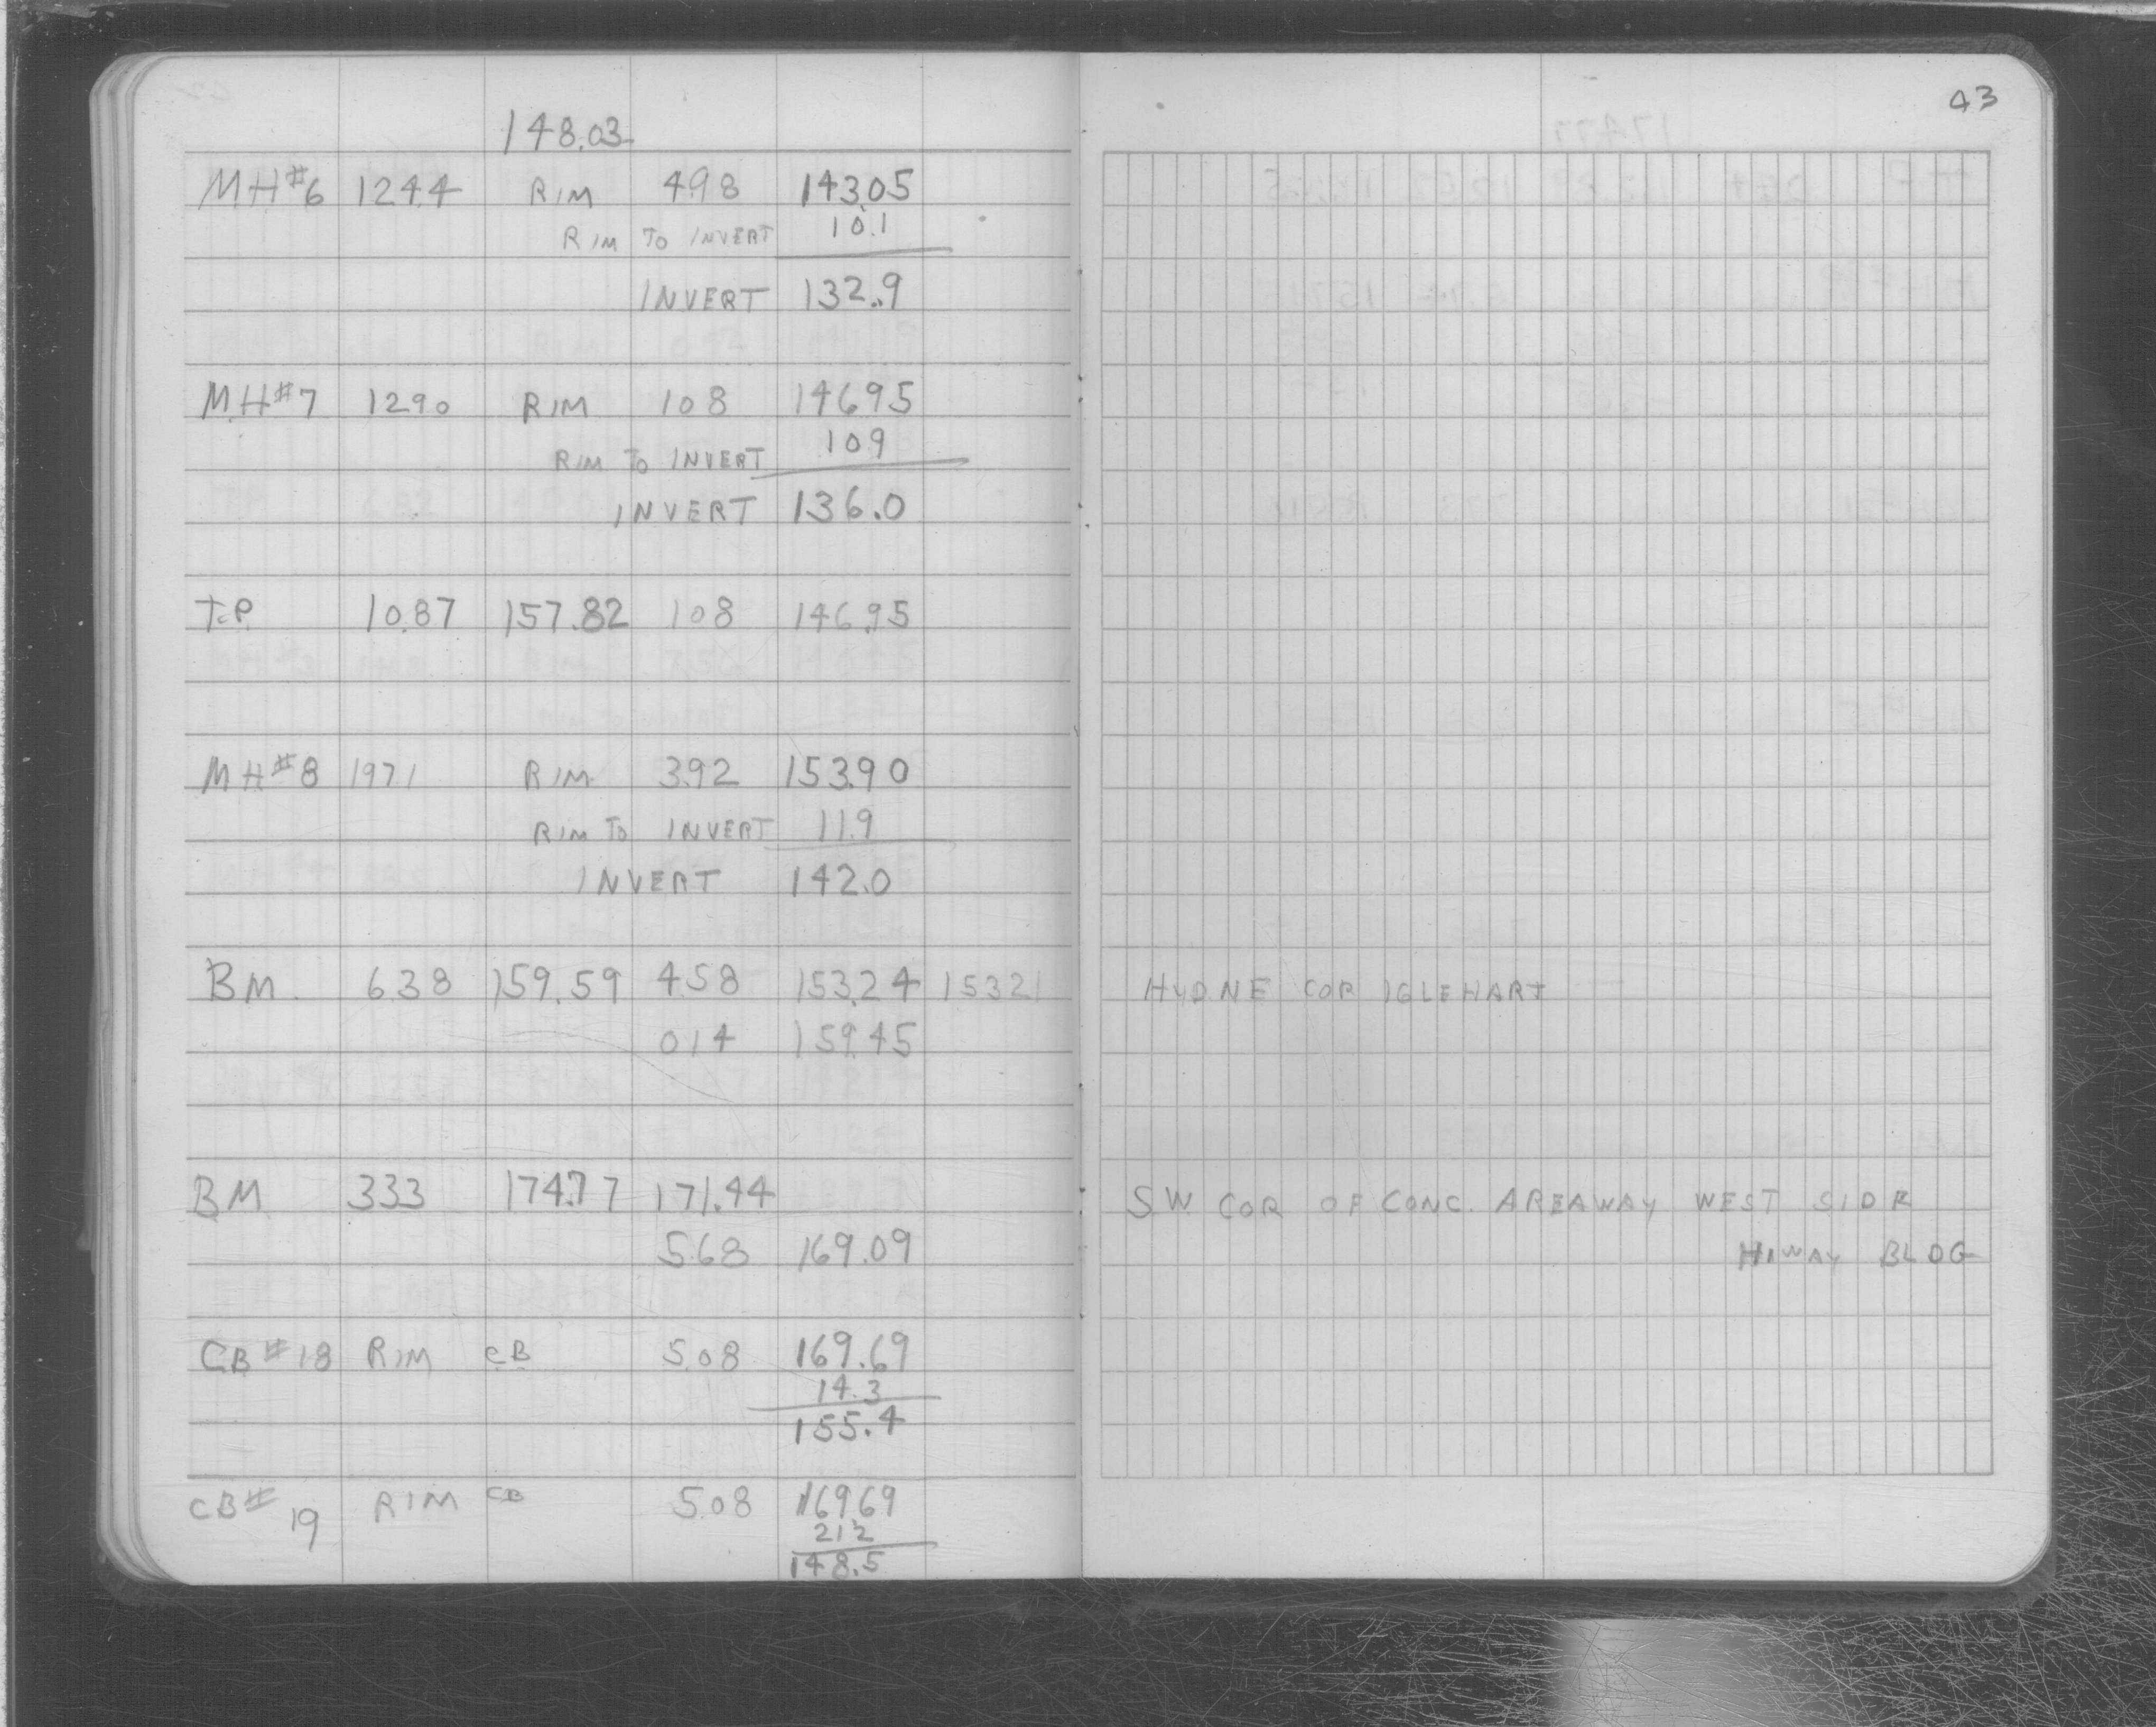 43
148.03
MH#6 1244 RIM 4.98 143.05
RIM TO INVERT 10.1
INVERT 132.9
MH#7 1290 RIM 108 146.95
RIM TO INVERT 109
INVERT 136.0
T.P. 10.87 157.82 108 146.95
MH#8 1971 RIM 3.92 153.90
RIM TO INVERT 11.9
INVERT 142.0
BM. 638 159.59 4.58 153.24 15321 HYD NE COR IGLEHART
014 159.45
BM 333 174.77 171.44 SW COR OF CONC. AREAWAY WEST SIDE
568 169.09 HIWAY BLDG
CB#18 RIM CB 5.08 169.69
14.3
155.4
CB#19 RIM CB 5.08 169.69
21.2
148.5